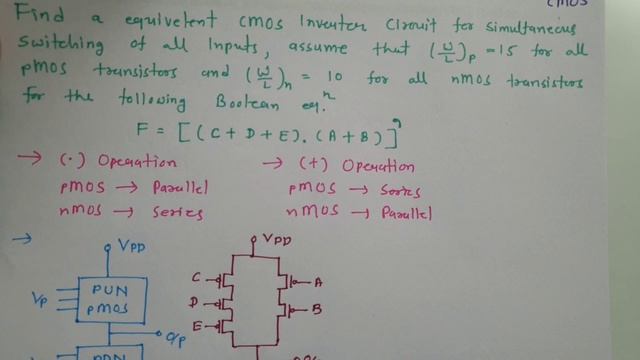 CMOS
Find a equivelent CMOS Inverter Circuit for Simultaneous
Switching of all Inputs, assume that (W/L)p = 15 for all
pMOS transistors and (W/L)n = 10 for all nMOS transistors
for the following Boolean eqn.
F = [(C + D + E) . (A + B)]'
→ (.) Operation
pMOS → Parallel
nMOS → Series
→ (+) Operation
pMOS → Series
nMOS → Parallel
→
VDD
PUN
pMOS
Vp
O/p
PDN
VDD
C
D
E
A
B